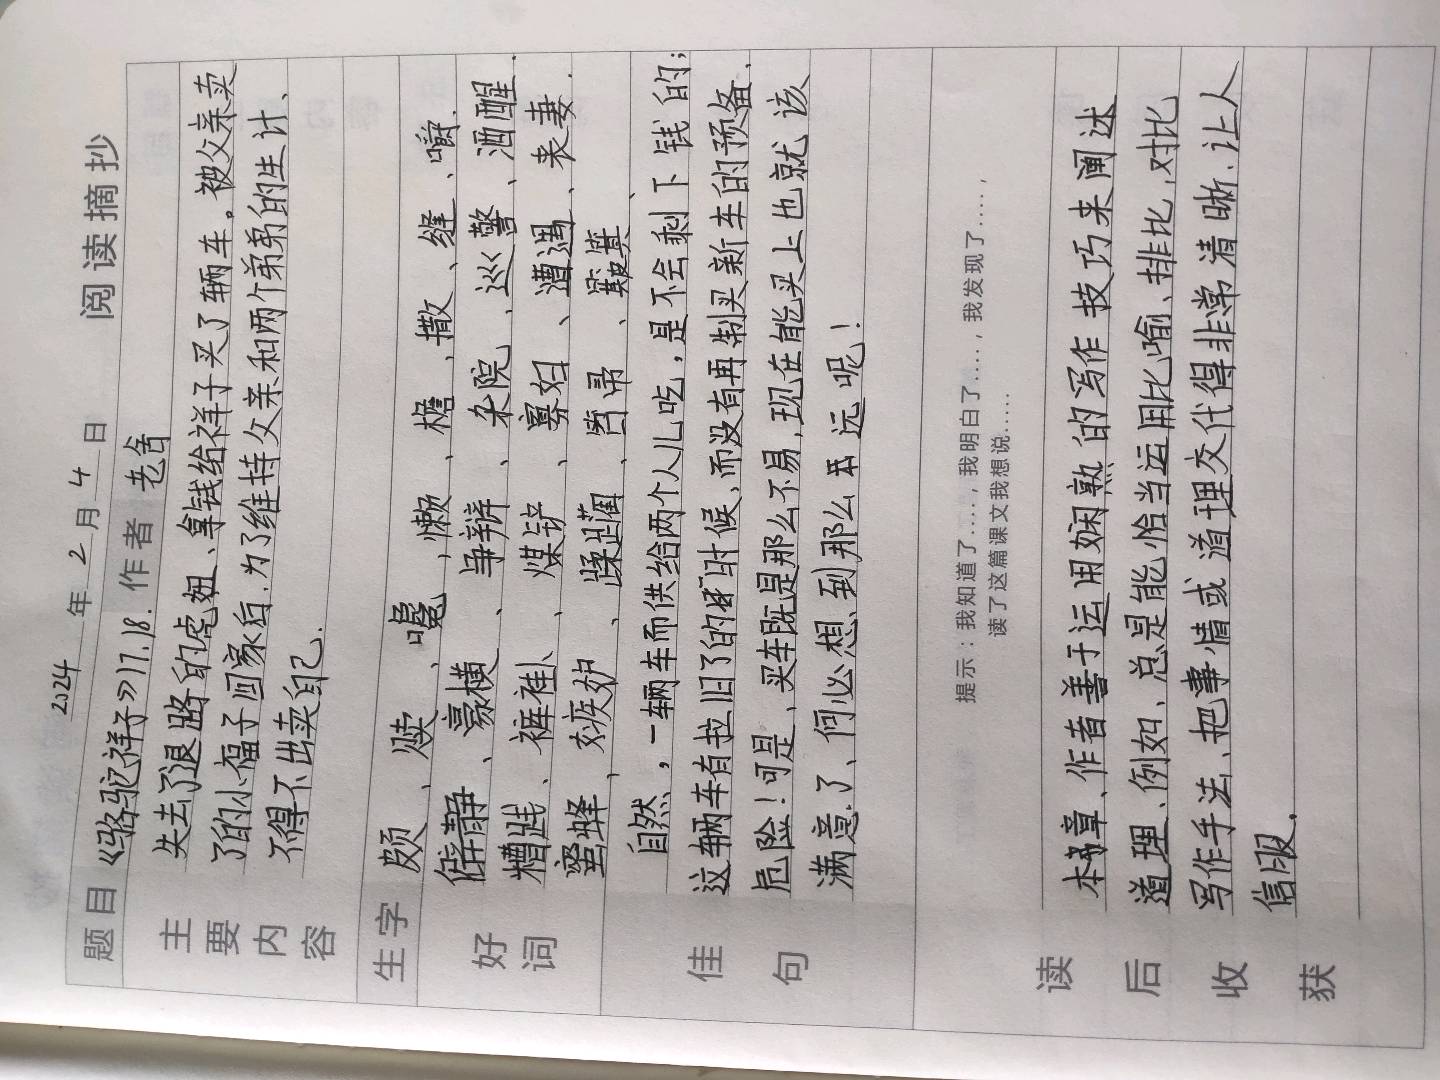 2024年2月4日 阅读摘抄
题目 《骆驼祥子》17.18. 作者 老舍
主要内容
失去了退路的虎妞、拿钱给祥子买了辆车。被父亲卖
了的小福子回家后.为了维持父亲和两个弟弟的生计、
不得不出卖自己.
生字 颇、赎、嚷、懒、檐、撒、缝、嚼.
好词
僻静、豪横、争辩、杂院、巡警、酒醒.
糟践、裤褂、煤铲、寡妇、遭遇、丧妻.
蜜蜂、嫉妒、蹂躏、笤帚、簸箕、
佳句
自然,一辆车而供给两个人儿吃,是不会剩下钱的;
这辆车有拉旧了的时候,而没有再制买新车的预备.
危险!可是、买车既是那么不易,现在能买上也就该
满意了、何必想到那么远呢!
读后收获
提示:我知道了....,我明白了....,我发现了....,
读了这篇课文我想说.....
本章、作者善于运用娴熟的写作技巧来阐述
道理、例如、总是能恰当运用比喻、排比,对比
写作手法、把事情或道理交代得非常清晰、让人
信服.